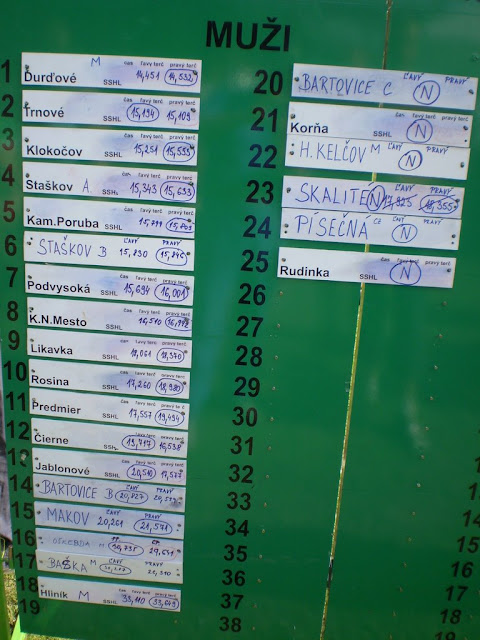 MUŽI
1 Ďurďové M SSHL čas ľavý terč pravý terč 14,451 14,532
2 Trnové SSHL čas ľavý terč pravý terč 15,194 15,109
3 Klokočov SSHL čas ľavý terč pravý terč 15,251 15,555
4 Staškov A SSHL čas ľavý terč pravý terč 15,343 15,633
5 Kam.Poruba SSHL čas ľavý terč pravý terč
6 STAŠKOV B ĽAVÝ PRAVÝ 15,830 15,840
7 Podvysoká SSHL čas ľavý terč pravý terč 15,694 16,001
8 K.N.Mesto SSHL čas ľavý terč pravý terč 16,510
9 Likavka SSHL čas ľavý terč pravý terč 18,061 18,370
10 Rosina SSHL čas ľavý terč pravý terč 17,260 18,980
11 Predmier SSHL čas ľavý terč 17,557 19,494
12 Čierne SSHL čas ľavý terč pravý terč 19,717 16,538
13 Jablonové SSHL čas ľavý terč pravý terč 20,510 17,577
14 BARTOVICE B ĽAVÝ PRAVÝ 20,827
15 MAKOV ĽAVÝ PRAVÝ 20,261 21,571
16 M
17 BAŠKA M ĽAVÝ PRAVÝ
18 Hliník M SSHL čas ľavý terč pravý terč 33,110 33,649
19
20 BARTOVICE C ĽAVÝ PRAVÝ N
21 Korňa SSHL čas ľavý terč pravý terč N
22 H. KELČOV M ĽAVÝ PRAVÝ N
23 SKALITÉ N ĽAVÝ PRAVÝ
24 PÍSEČNÁ PRAVÝ N
25 Rudinka SSHL čas ľavý terč pravý terč N
26
27
28
29
30
31
32
33
34
35
36
37
38
14
15
16
17
18